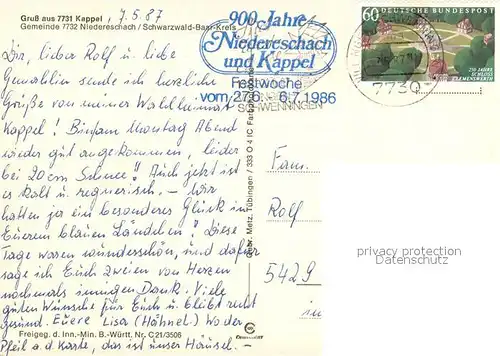 Gruß aus 7731 Kappel, 7.5.87
Gemeinde 7732 Niedereschach / Schwarzwald-Baar-Kreis
Dir, lieber Rolf u. liebe
Gemahlin sende ich herzliche
Grüße von meiner Wahlheimat
Kappel! Bin am Montag Abend
wieder gut angekommen, leider
bei 20 cm Schnee! Auch jetzt ist
es kalt u. regnerisch. – Wir
hatten ja ein besonderes Glück im
Euerem blauen Ländchen! Diese
Tage waren wunderschön, und dafür
sage ich Euch zweien von Herzen
nochmals innigen Dank. Viele
guten Wünsche für Euch u. bleibt recht
gesund. Euere Lisa (Hähnel) Wo der
Pfeil a. d. Karte, das ist unser Häusel. –
Freigeg. d. Inn.-Min. B.-Württ. Nr. C 21/3506
Gebr. Metz, Tübingen / 333 O 4 IC
900 Jahre
Niedereschach
und Kappel
Festwoche
vom 27.6. 6.7.1986
SCHWENNINGEN
7730
60 DEUTSCHE BUNDESPOST
250 JAHRE
SCHLOSS
CLEMENSWERTH
Fam.
Rolf
5429
in
privacy protection
Datenschutz